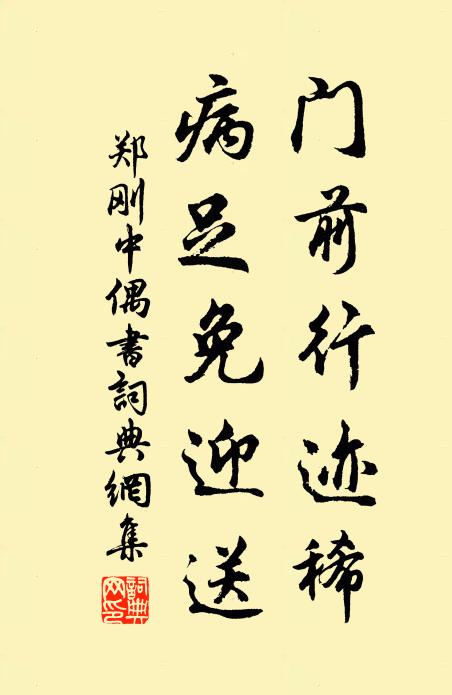 门前行迹稀
病足免迎送
郑刚中偶书詞典網集
詞典网印